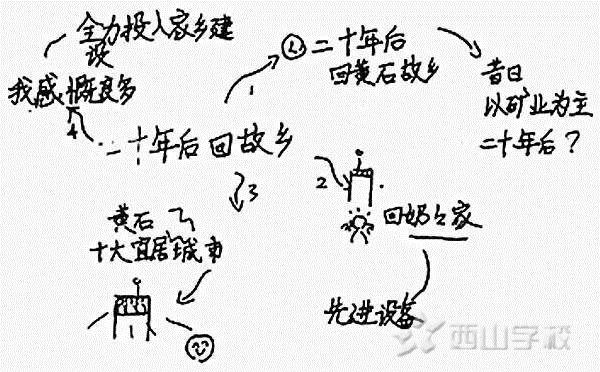 全力投入家乡建
设
我感慨良多
4
二十年后回故乡
1
① 二十年后
回黄石故乡
昔日
以矿业为主
二十年后？
2
回奶々家
先进设备
3
黄石
十大宜居城市
西山学校